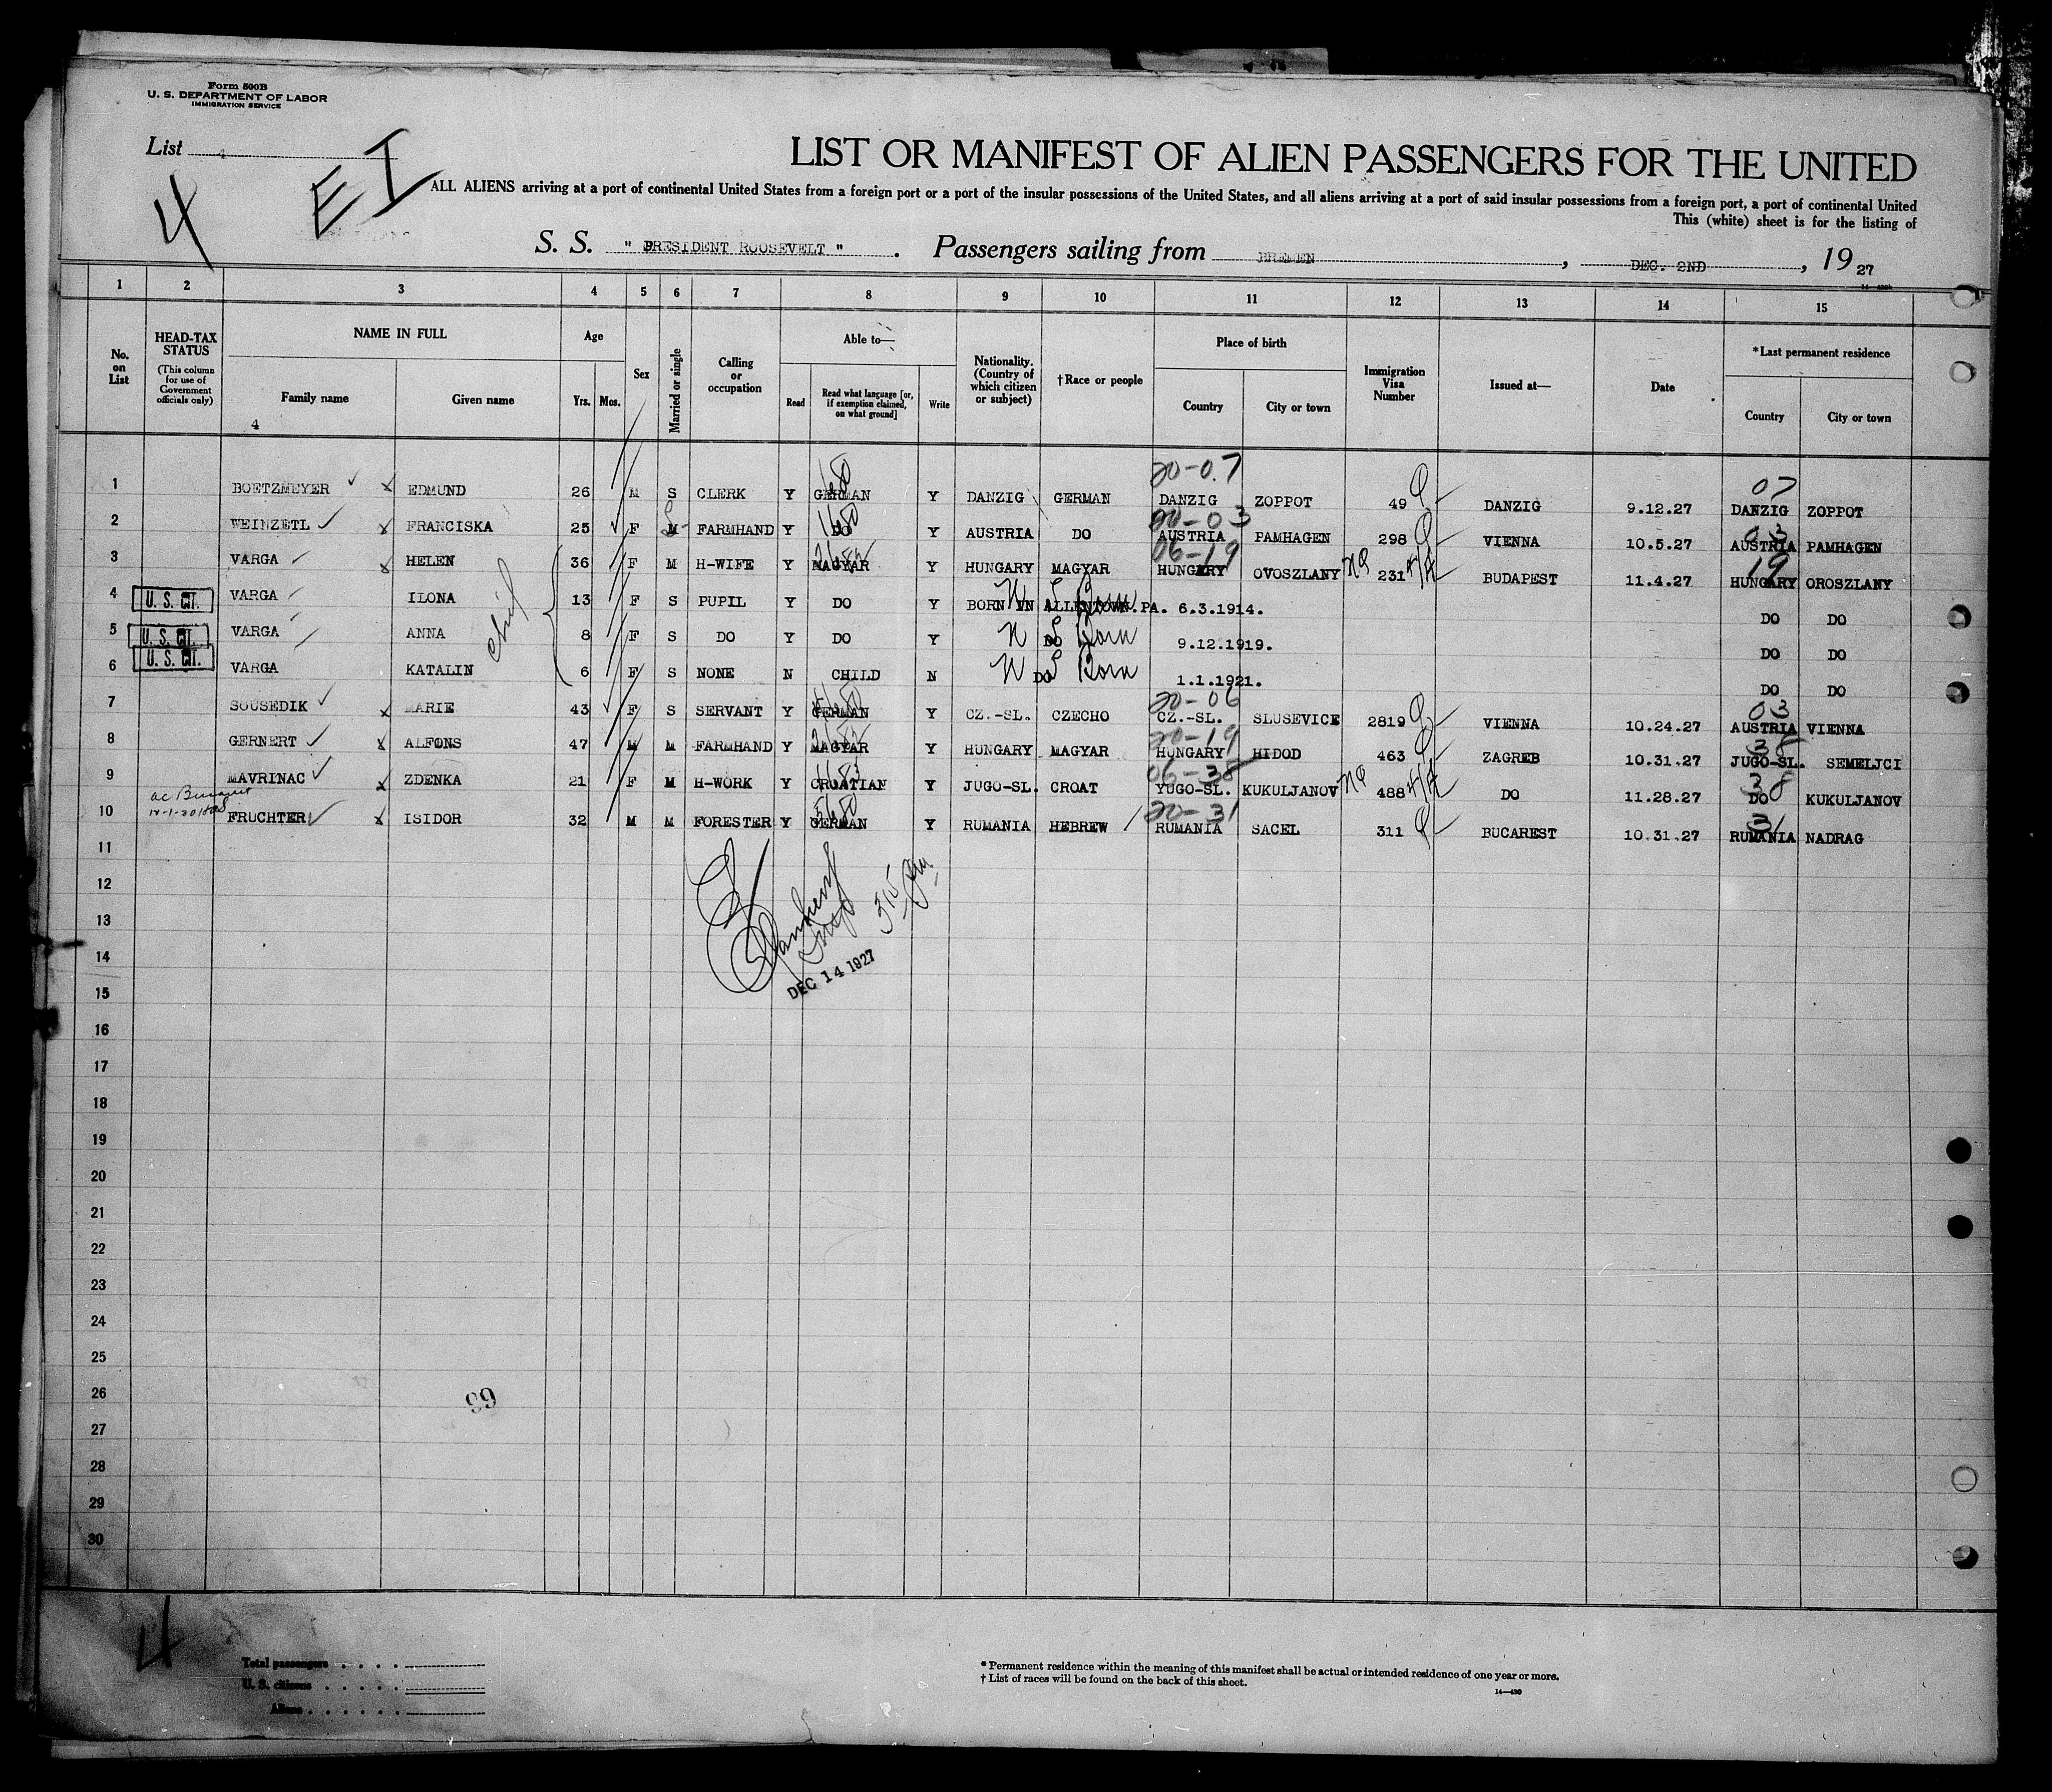 Form 500B
U. S. DEPARTMENT OF LABOR
IMMIGRATION SERVICE
List 4
4 EI
LIST OR MANIFEST OF ALIEN PASSENGERS FOR THE UNITED
ALL ALIENS arriving at a port of continental United States from a foreign port or a port of the insular possessions of the United States, and all aliens arriving at a port of said insular possessions from a foreign port, a port of continental United
This (white) sheet is for the listing of
S. S. " PRESIDENT ROOSEVELT " . Passengers sailing from BREMEN , DEC. 2ND , 19 27
1 2 3 4 5 6 7 8 9 10 11 12 13 14 15
No. on List
HEAD-TAX STATUS (This column for use of Government officials only)
NAME IN FULL Family name Given name
4
Age Yrs. Mos.
Sex
Married or single
Calling or occupation
Able to— Read Read what language [or, if exemption claimed, on what ground] Write
Nationality. (Country of which citizen or subject)
†Race or people
Place of birth Country City or town
Immigration Visa Number
Issued at—
Date
*Last permanent residence Country City or town
20-07 07
1 BOETZMEYER EDMUND 26 M S CLERK Y GERMAN Y DANZIG GERMAN DANZIG ZOPPOT 49 DANZIG 9.12.27 DANZIG ZOPPOT
20-03 03
2 WEINZETL FRANCISKA 25 F M FARMHAND Y DO Y AUSTRIA DO AUSTRIA PAMHAGEN 298 VIENNA 10.5.27 AUSTRIA PAMHAGEN
06-19 19
3 VARGA HELEN 36 F M H-WIFE Y MAGYAR Y HUNGARY MAGYAR HUNGARY OVOSZLANY NQ 231 BUDAPEST 11.4.27 HUNGARY OROSZLANY
4 U. S. CIT. VARGA ILONA 13 F S PUPIL Y DO Y BORN IN ALLENTOWN.PA. 6.3.1914. DO DO
5 U. S. CIT. VARGA ANNA 8 F S DO Y DO Y DO 9.12.1919. DO DO
6 U. S. CIT. VARGA KATALIN 6 F S NONE N CHILD N DO 1.1.1921. DO DO
20-06 03
7 SOUSEDIK MARIE 43 F S SERVANT Y GERMAN Y CZ.-SL. CZECHO CZ.-SL. SLUSEVICE 2819 VIENNA 10.24.27 AUSTRIA VIENNA
20-19 38
8 GERNERT ALFONS 47 M M FARMHAND Y MAGYAR Y HUNGARY MAGYAR HUNGARY HIDOD 463 ZAGREB 10.31.27 JUGO-SL. SEMELJCI
06-38 38
9 MAVRINAC ZDENKA 21 F M H-WORK Y CROATIAN Y JUGO-SL. CROAT YUGO-SL. KUKULJANOV NQ 488 DO 11.28.27 DO KUKULJANOV
20-31 31
10 FRUCHTER ISIDOR 32 M M FORESTER Y GERMAN Y RUMANIA HEBREW RUMANIA SACEL 311 BUCAREST 10.31.27 RUMANIA NADRAG
11
12
13
14
DEC 14 1927
15
16
17
18
19
20
21
22
23
24
25
26
99
27
28
29
30
4
Total passengers . . . .
U. S. citizens . . . . .
Aliens . . . . . .
* Permanent residence within the meaning of this manifest shall be actual or intended residence of one year or more.
† List of races will be found on the back of this sheet.
14—430